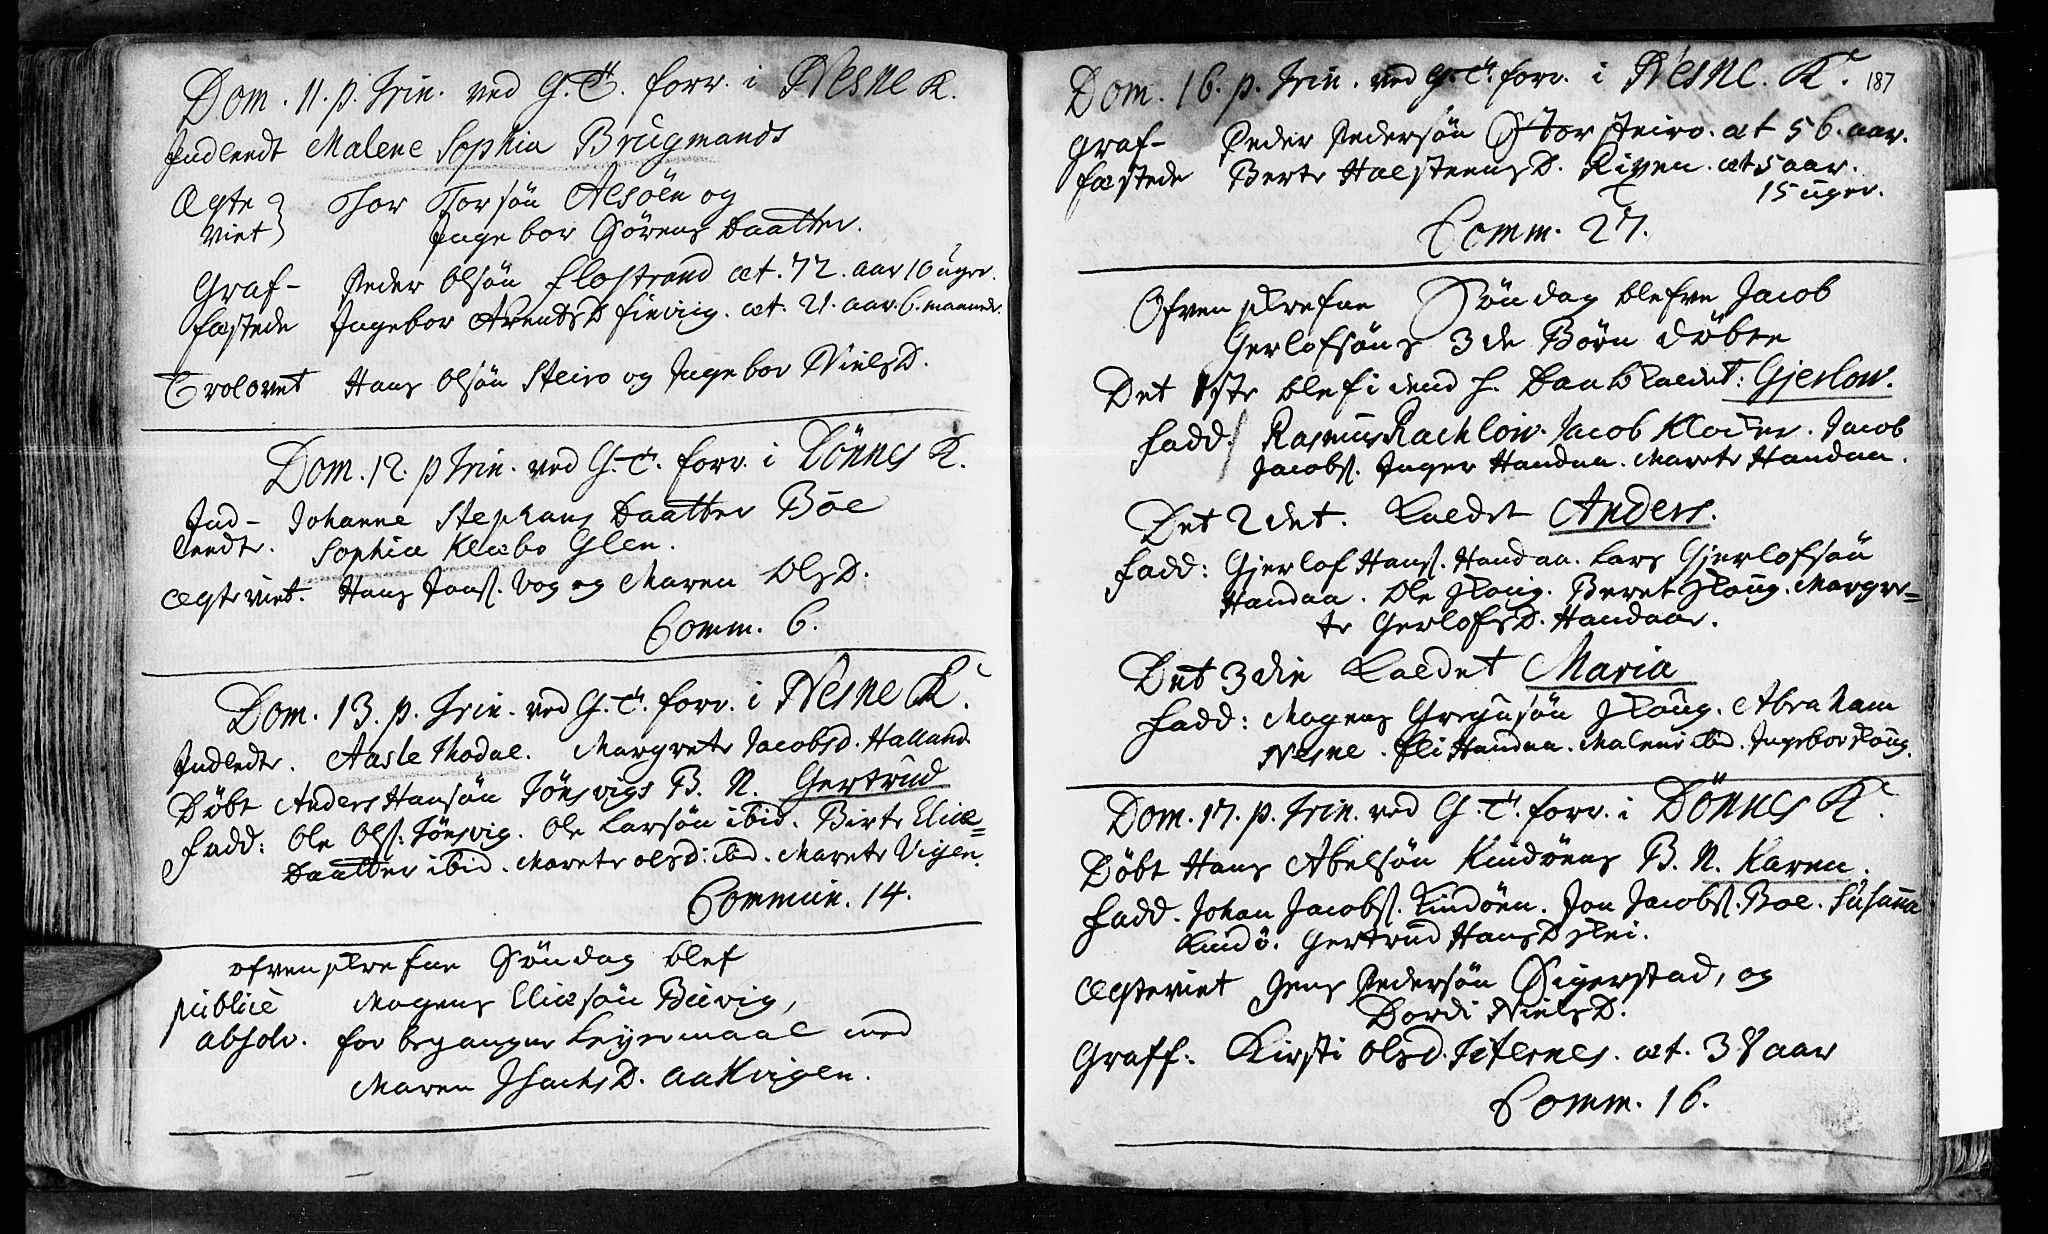 Dom. 11. p. Trin. ved G. T. forr. i Nesne K.
Indleedt Malene Sophia Brugmands
Ægte Thor Torsøn Alsøen og
viet} Ingebor Sørens Daatter.
Graf- Peder Olsøn Flostrand æt. 72. aar 10 uger.
fæstede Ingebor ArendsD Finvig. æt. 21. aar. 6. maaneder.
Trolovet Hans Olsøn Steiro og Ingebor NielsD.
Dom. 12. p Trin. ved G. T. forr. i Dønnes K.
Ind- Johanne Stephans Daatter Bøe
leedte. Sophia Klæbo Glen.
Ægteviet. Hans Jons. Vog og Maren OlsD.
Comm. 6.
Dom. 13. p. Trin. ved G. T. forr. i Nesne K.
Indledte. Aasle Thodal. Margrete Jacobsd. Halland.
Døbt Anders Hansøn Tønsvigs B. N. Gertrud
Fadd: Ole Ols. Tønsvig. Ole Larsøn ibid. Birte Eliæ=
Daatter ibid. Marete olsd: ibd. Marete Vigen.
Commun. 14.
ofvenskrefne Søndag blef
publicè Mogens Eliæsøn Buvig,
absolv. for begangne Leyermaal med
Maren IsachsD. Aakvigen.
187
Dom. 16. p. Trin. ved G. T. forr. i Nesne. K.
Graf- Peder Pedersøn Stor steiro. æt 56. aar.
fæstede Berte HalsteensD. Kigen. æt 5 aar.
15 uger.
Comm. 27.
Ofvenskrefne Søndag blefve Jacob
Gerlofsøns 3de Børn døbte
Det 1ste blef idend H. Daab kaldet: Gjerlow.
Fadd. Rasmus Rachlow. Jacob Klocker. Jacob
Jacobs. Inger Handaa. Marete Handaa.
Det 2det. kaldet Anders.
Fadd: Gjerlof Hans. Handaa. Lars Gjerlofsøn
Handaa. Ole Skoug. Beret Skoug. Margre=
te GerlofsD. Handaae.
Det 3die kaldet Maria
Fadd: Mogens Gregusøn Skoug. Abraham
Nesne. Eli Handaa. Malene ibd. Ingebor Skoug.
Dom. 17. p. Trin. ved G. T. forr. i Dønnes K.
Døbt Hans Abelsøn Kindøens B. N. Karen.
Fadd. Johan Jacobs. Kindøen. Jon Jacobs. Boe. Susanna
Kindø. Gertrud HansD skei.
Ægteviet Jens Pedersøn Sigerstad, og
Dordi NielsD.
Graff. Kirsti Olsd. Titternes. æt. 38 aar
Comm. 16.